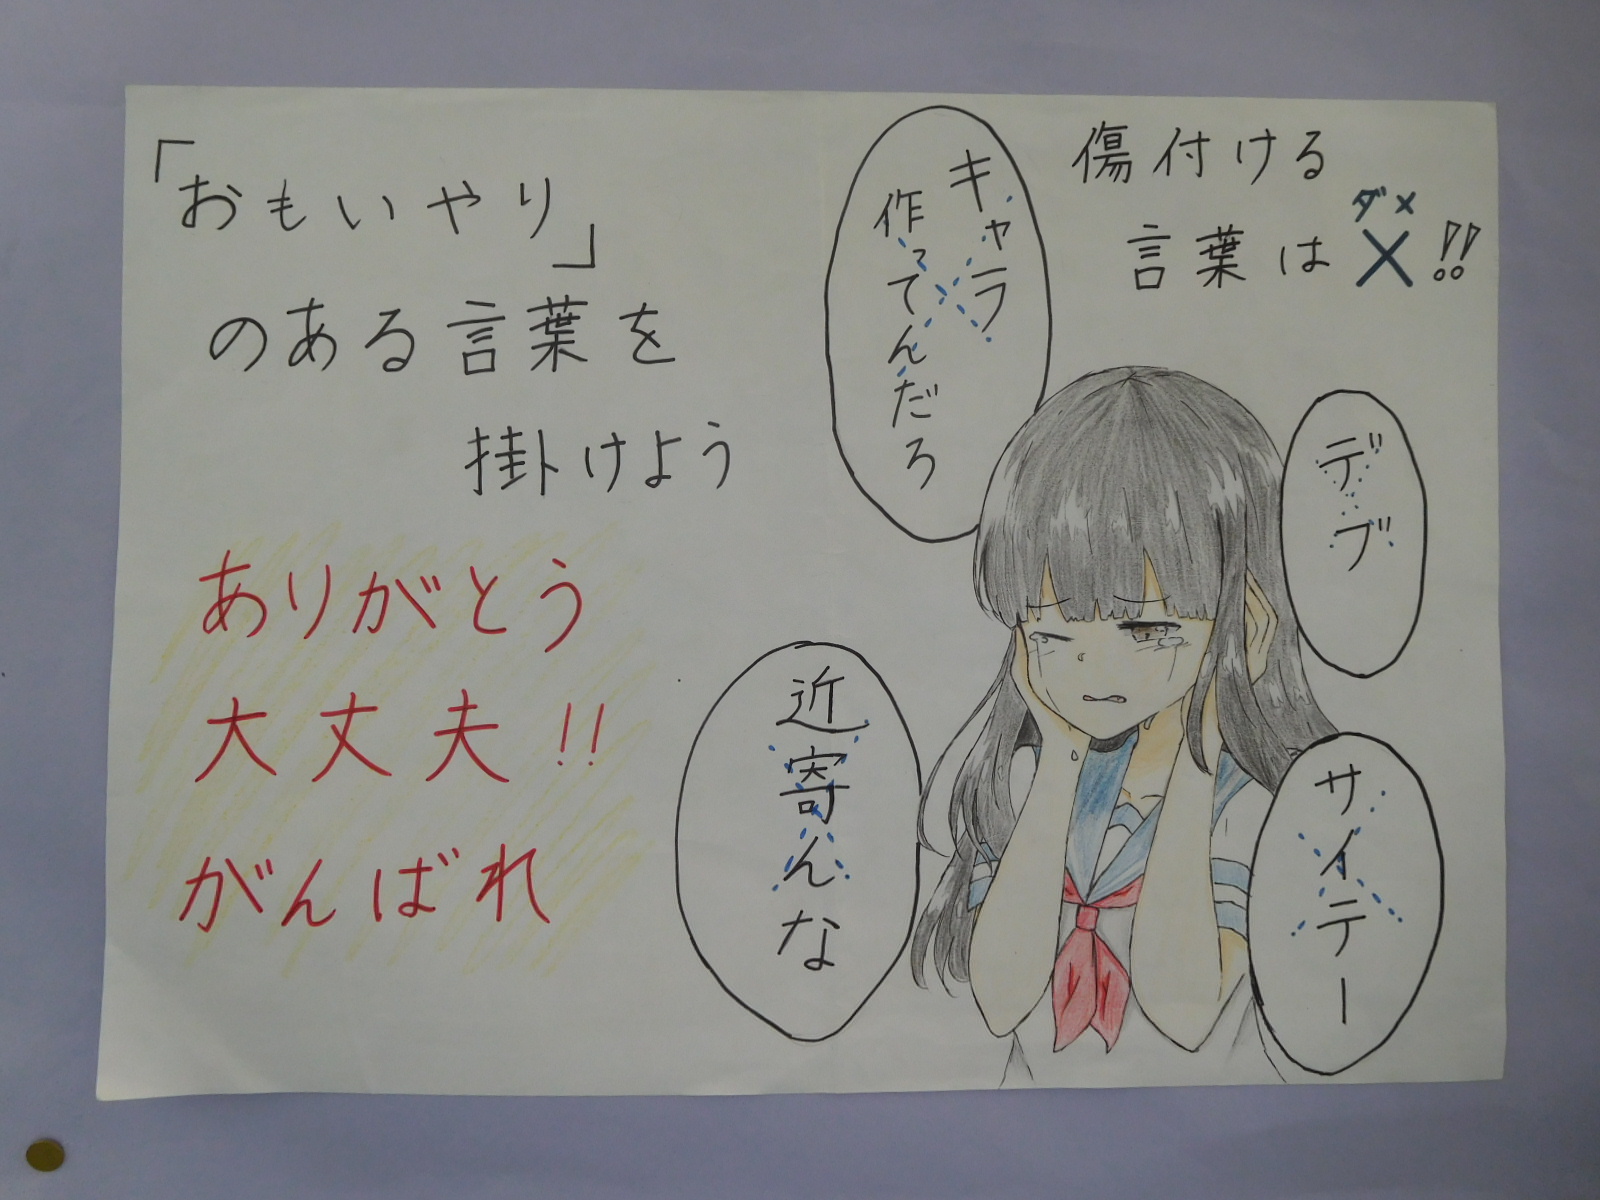 「おもいやり」
のある言葉を
掛けよう
ありがとう
大丈夫!!
がんばれ
傷付ける
ダメ
言葉は×!!
キャラ
作ってんだろ
デブ
近寄んな
サイテー